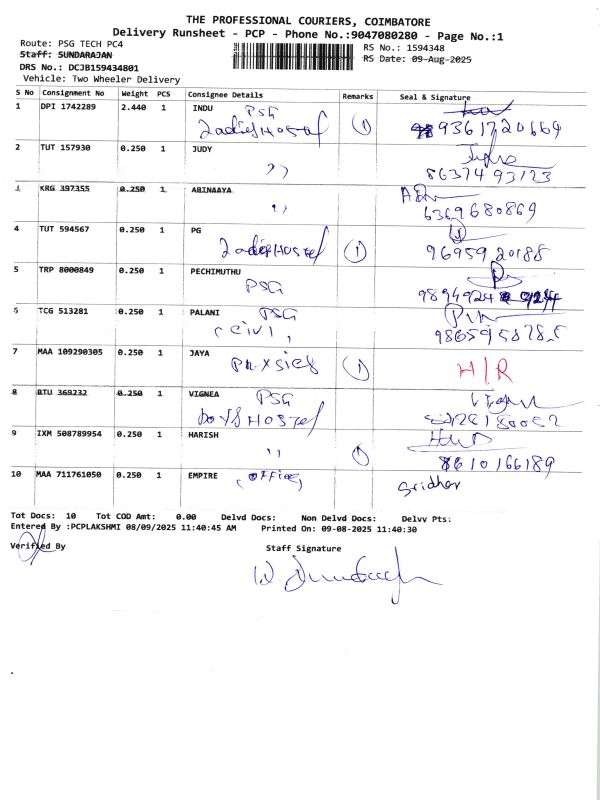 THE PROFESSIONAL COURIERS, COIMBATORE
Delivery Runsheet - PCP - Phone No.:9047080280 - Page No.:1
Route: PSG TECH PC4
RS No.: 1594348
Staff: SUNDARAJAN
RS Date: 09-Aug-2025
DRS No.: DCJB159434801
Vehicle: Two Wheeler Delivery
S No Consignment No Weight PCS Consignee Details Remarks Seal & Signature
1 DPI 1742289 2.440 1 INDU PSG
Ladies Hostel 1 9361720664
2 TUT 157930 0.250 1 JUDY
,, 8637493123
3 KRG 397355 0.250 1 ABINAAYA
,, 6369680869
4 TUT 594567 0.250 1 PG
Ladies Hostel 1 9695920188
5 TRP 8000849 0.250 1 PECHIMUTHU
PSG 9894924
6 TCG 513281 0.250 1 PALANI PSG
(Civil)
7 MAA 109290305 0.250 1 JAYA
1 H/R
8 BTU 369232 0.250 1 VIGNEA PSG
Boys Hostel
9 IXM 508789954 0.250 1 HARISH
,, 1 8610166189
10 MAA 711761050 0.250 1 EMPIRE (Office) Sridhar
Tot Docs: 10 Tot COD Amt: 0.00 Delvd Docs: Non Delvd Docs: Delvy Pts:
Entered By :PCPLAKSHMI 08/09/2025 11:40:45 AM Printed On: 09-08-2025 11:40:30
Verified By
Staff Signature